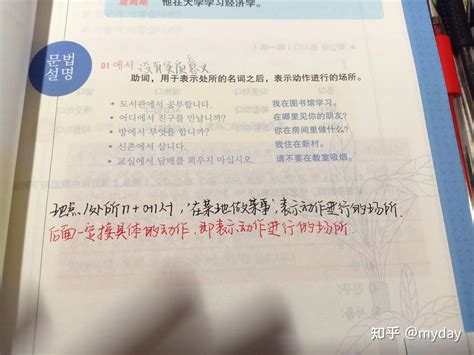 他在大学学习经济学。
문법
설명
01 에서 没有实际意义
助词，用于表示处所的名词之后，表示动作进行的场所。
• 도서관에서 공부합니다. 我在图书馆学习。
• 어디에서 친구를 만납니까? 在哪里见你的朋友?
• 방에서 무엇을 합니까? 你在房间里做什么?
• 신촌에서 삽니다. 我住在新村。
• 교실에서 담배를 피우지 마십시오. 请不要在教室吸烟。
地点/处所n+에서，"在某地做某事"，表示动作进行的场所.
后面一定接具体的动作，即表示动作进行的场所
知乎 @myday